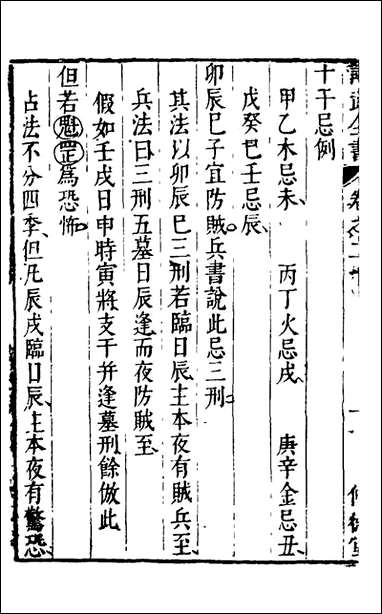 韜逰全書
卷之二十
十干忌例
甲乙木忌未 丙丁火忌戌 庚辛金忌丑
戊癸巳壬忌辰
卯辰巳子宜防賊兵書說此忌三刑
其法以卯辰巳三刑若臨日辰主本夜有賊兵至
兵法曰三刑五墓日辰逢而夜防賊至
假如壬戌日申時寅將支干并逢墓刑餘倣此
但若魁罡爲恐怖
占法不分四季但凡辰戌臨日辰主本夜有驚恐